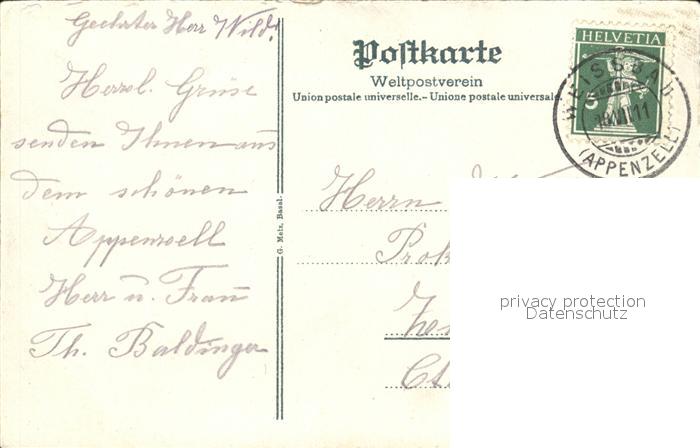 Geehrter Herr Wild!
Herzl. Grüse
senden Ihnen aus
dem schönen
Appenzell
Herr u. Frau
Th. Baldinger
Postkarte
Weltpostverein
Union postale universelle.–Unione postale universale.
G. Metz, Basel.
HELVETIA
5
WEISSBAD
11
(APPENZELL)
Herrn
Prok
privacy protection
Datenschutz